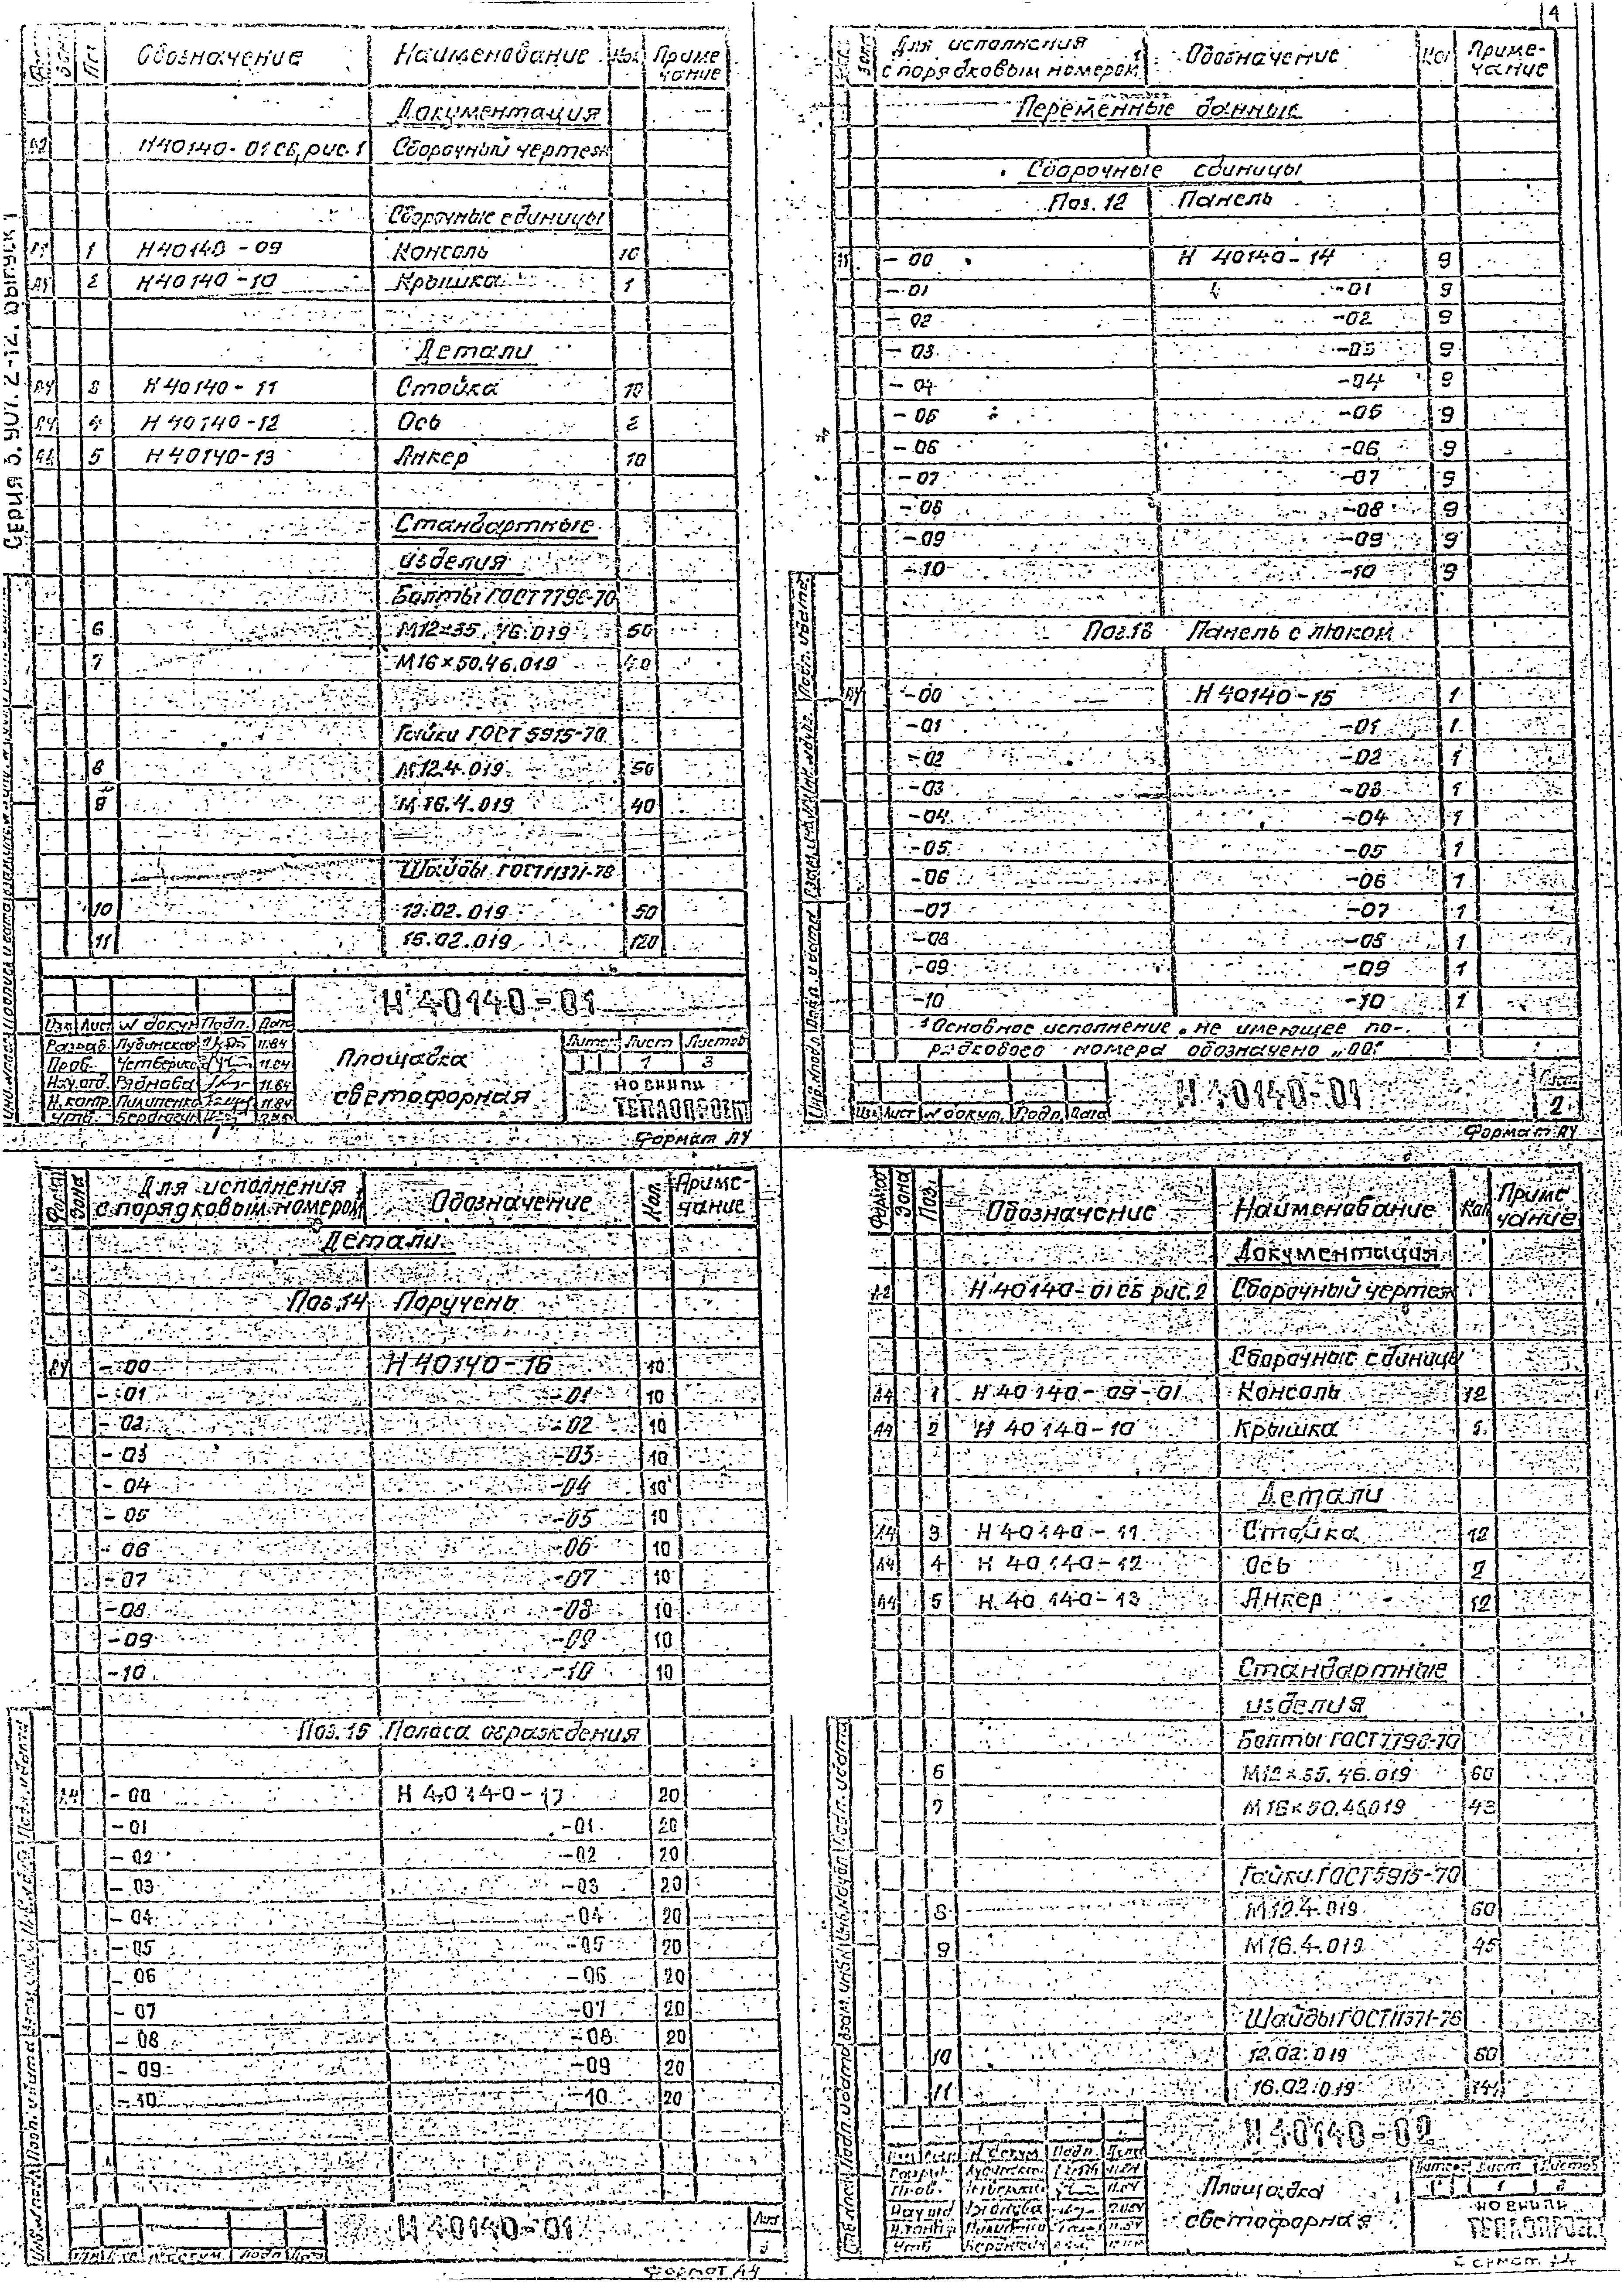 4
Серия 3.907.2-12. Выпуск 1
Поз. Обозначение Наименование Кол. Примечание
Документация
Н40140-01СБ, рис.1 Сборочный чертеж
Сборочные единицы
1 Н40140-09 Консоль 10
А4 2 Н40140-10 Крышка 1
Детали
А4 3 Н40140-11 Стойка 10
А4 4 Н40140-12 Ось 2
А4 5 Н40140-13 Анкер 10
Стандартные
изделия
Болты ГОСТ 7798-70
6 М12×35.46.019 50
7 М16×50.46.019 40
Гайки ГОСТ 5915-70
8 М12.4.019 50
9 М16.4.019 40
Шайбы ГОСТ 11371-78
10 12.02.019 50
11 16.02.019 120
Н40140-01
Изм. Лист № докум. Подп. Дата
Разраб. Лубинская 11.84
Пров. Четверик 11.84
Нач.отд. 11.84
Н.контр. Пилипенко 11.84
Утв.
Площадка
светофорная
Литер. Лист Листов
1 3
НОВНИПИ
ТЕПЛОПРОЕКТ
Формат А4
Для исполнения
с порядковым номером¹ Обозначение Кол Примечание
Переменные данные
Сборочные единицы
Поз. 12 Панель
-00 Н 40140-14 9
-01 -01 9
-02 -02 9
-03 -03 9
-04 -04 9
-05 -05 9
-06 -06 9
-07 -07 9
-08 -08 9
-09 -09 9
-10 -10 9
Поз.13 Панель с люком
А4 -00 Н 40140-15 1
-01 -01 1
-02 -02 1
-03 -03 1
-04 -04 1
-05 -05 1
-06 -06 1
-07 -07 1
-08 -08 1
-09 -09 1
-10 -10 1
¹ Основное исполнение, не имеющее по-
рядкового номера обозначено „00"
Изм Лист № докум. Подп. Дата
Н40140-01
Лист
2
Формат А4
Формат Зона Для исполнения
с порядковым номером¹ Обозначение Кол. Примечание
Детали
Поз.14 Поручень
А4 -00 Н40140-16 10
-01 -01 10
-02 -02 10
-03 -03 10
-04 -04 10
-05 -05 10
-06 -06 10
-07 -07 10
-08 -08 10
-09 -09 10
-10 -10 10
Поз.15 Полоса ограждения
А4 -00 Н 40140-17 20
-01 -01 20
-02 -02 20
-03 -03 20
-04 -04 20
-05 -05 20
-06 -06 20
-07 -07 20
-08 -08 20
-09 -09 20
-10 -10 20
Н40140-01
Лист
3
Формат А4
Формат Зона Поз. Обозначение Наименование Кол Примечание
Документация
А2 Н40140-01СБ рис.2 Сборочный чертеж
Сборочные единицы
А4 1 Н 40140-09-01 Консоль 12
А4 2 Н 40140-10 Крышка
Детали
А4 3 Н 40140-11 Стойка 12
А4 4 Н 40140-12 Ось 2
А4 5 Н 40140-13 Анкер 12
Стандартные
изделия
Болты ГОСТ 7798-70
6 М12×35.46.019 60
7 М16×50.46.019 48
Гайки ГОСТ 5915-70
8 М12.4.019 60
9 М16.4.019
Шайбы ГОСТ 11371-78
10 12.02.019 60
11 16.02.019
Н40140-02
Площадка
светофорная
Литер. Лист Листов
НОВНИПИ
ТЕПЛОПРОЕКТ
Формат А4